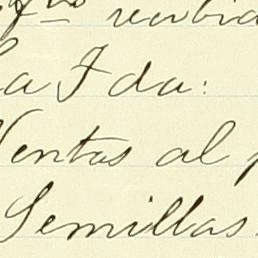 recibid
la Fda:
Ventas al p
Semillas